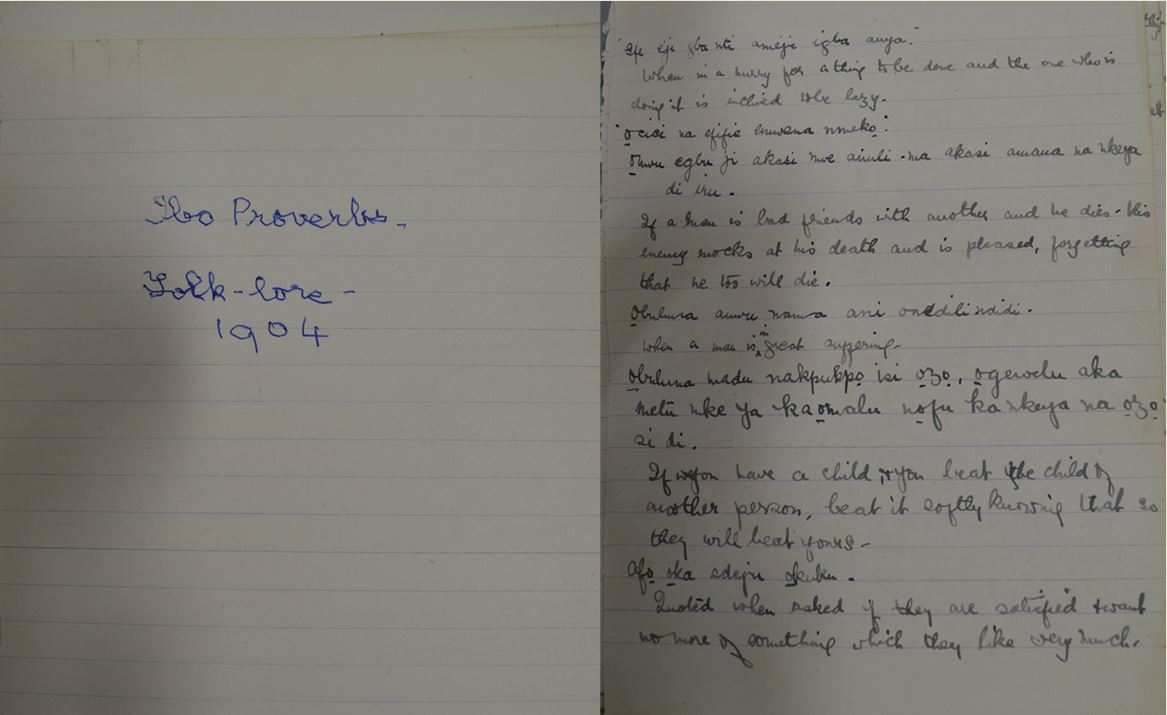 Ibo Proverbs.
Folk-lore -
1904
"Ife eji gba nti ameji igba anya."
When in a hurry for a thing to be done and the one who is
doing it is inclied to be lazy.
"ọcici na efifie enwena nmekọ."
Onwu egbu ji akasi nwe ainuli - na akasi amana na nkeya
di iru.
If a man is bad friends with another and he dies - his
enemy mocks at his death and is pleased, forgetting
that he too will die.
ọbuluna anwu nanwa ani onedili ndidi.
When a man is in great suffering -
ọbuluna madu nakpukpọ isi ọzọ, ọgewelu aka
metu nke ya ka ọmalu nọfu ka nkeya na ọzọ
si di.
If you have a child, & you beat the child of
another person, beat it softly knowing that so
they will beat yours -
Afọ ọka adeju ọkuku.
Quoted when asked if they are satisfied & want
no more of something which they like very much.